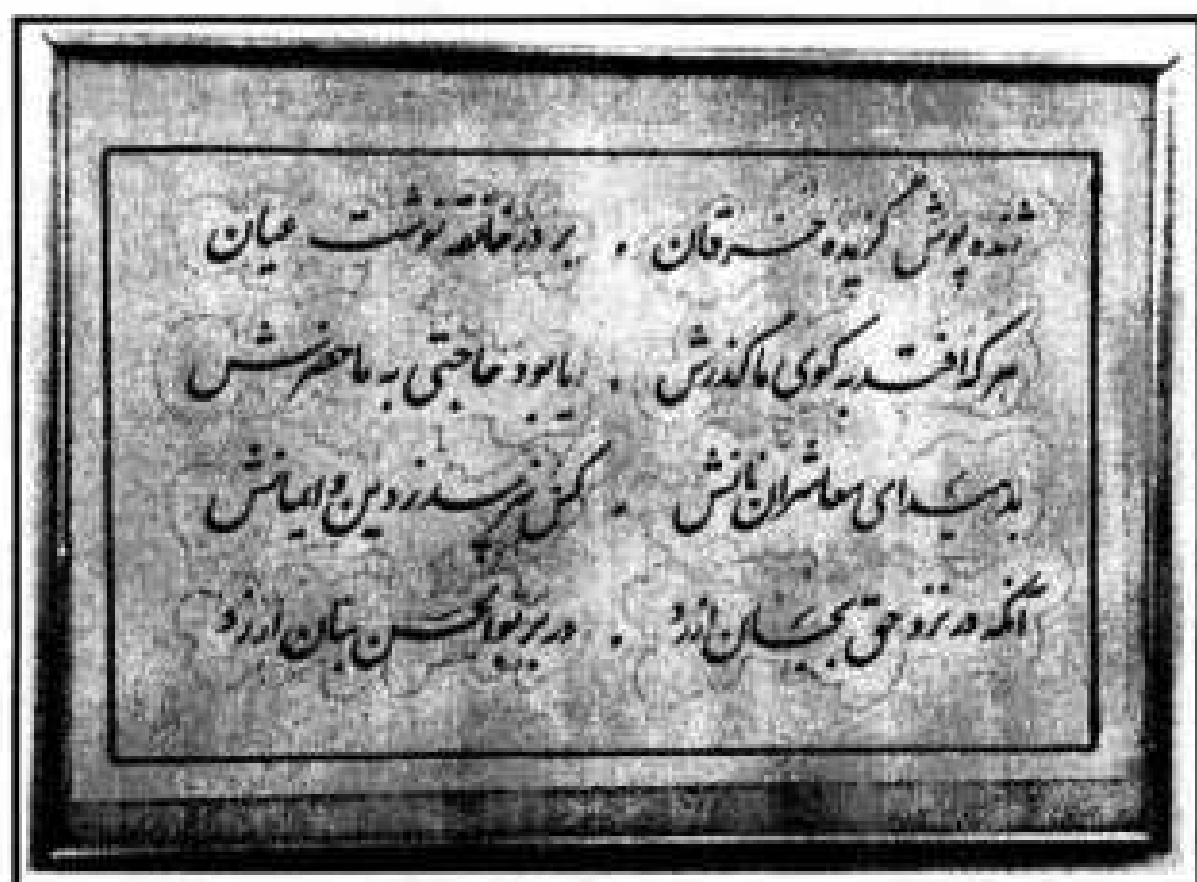 ژنده پوش گزیده خرقان . بر در خانقه نوشت عیان
هر که افتد به کوی ما گذرش . یا بود حاجتی به ما حضرش
بدهید ای معاشران نانش . کس نپرسد ز دین و ایمانش
آنکه در نزد حق بجان ارزد . در بر بوالحسن بنان ارزد